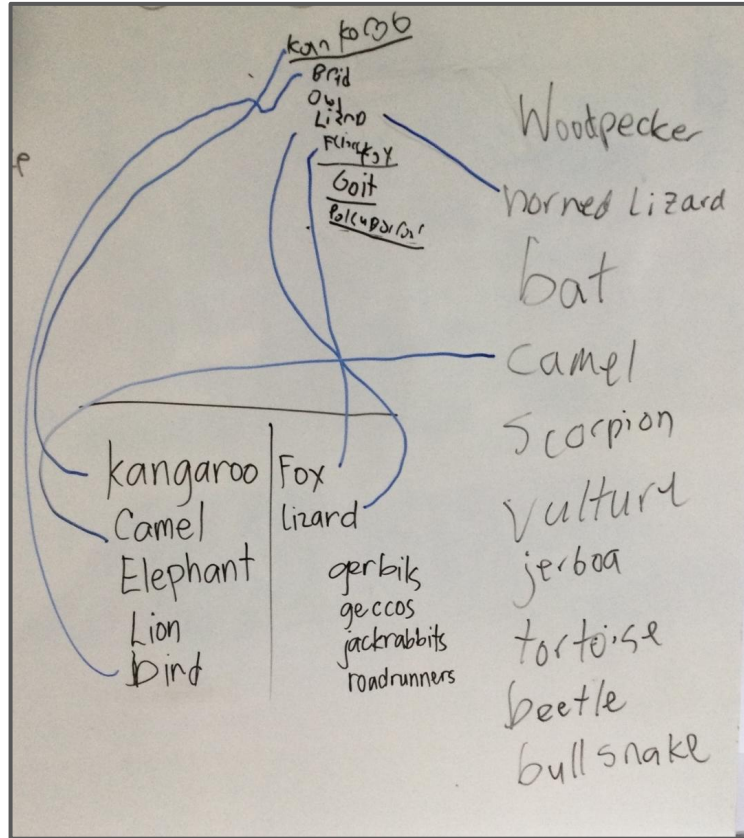 Brid
Owl
Lizno
Goit
Woodpecker
horned Lizard
bat
camel
Scorpion
Vulture
jerboa
tortoise
beetle
bull snake
kangaroo
Camel
Elephant
Lion
bird
Fox
lizard
gerbils
geccos
jackrabbits
roadrunners